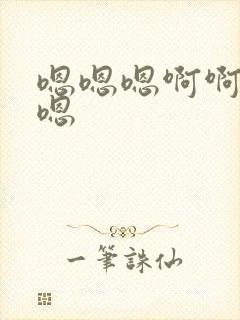 嗯嗯嗯啊啊
嗯
一筆誅仙